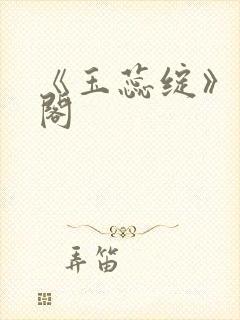 《玉蕊绽》
阁
弄笛